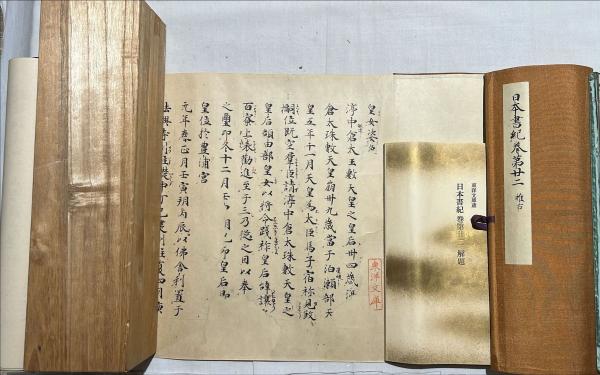 日本書紀巻第廿二 推古
東洋文庫蔵
日本書紀 巻第廿二 解題
東洋文庫
皇女姿色
渟中倉太玉敷天皇之皇后卅四歳渟
倉太珠敷天皇崩卅九歳當于泊瀬部天
皇五年十一月天皇為大臣馬子宿祢見
嗣位既空群臣請渟中倉太珠敷天皇之
皇后額田部皇女以将令践祚皇后辞讓之
百寮上表勧進至于三乃従之因以奉
之璽印冬十二月壬申朔己卯皇后即
皇位於豊浦宮
元年春正月壬寅朔丙辰以佛舎利置于
法興寺刹柱礎中丁巳建刹柱夏四月庚